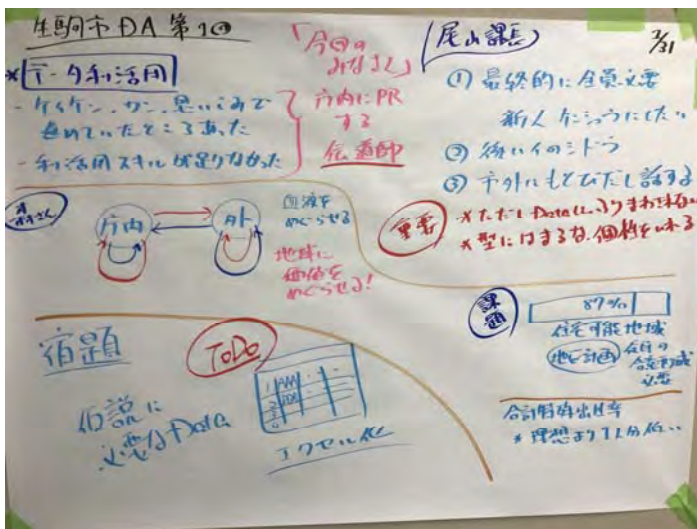 生駒市DA 第1回
*データ利活用
- ケイケン、カン、思いこみで
進めていたところあった
- 利活用スキルが足りなかった
「今回の
みなさん」
庁内にPR
する
伝道師
尾山課長
3/31
① 最終的に全員必要
新人ケンシュウにしたい
②
③ 市外にもとびだし話する
重要
*ただしDataに、ふりまわされない
*型にはまるな、個性をいれる
庁内
外
血液を
めぐらせる
地域に
価値を
めぐらせる!
課題
87%
住宅可能地域
地区計画
住民の
合意形成
必要
合計特殊出生率
*理想より1人分低い
宿題
ToDo
仮説に
必要なData
エクセル化